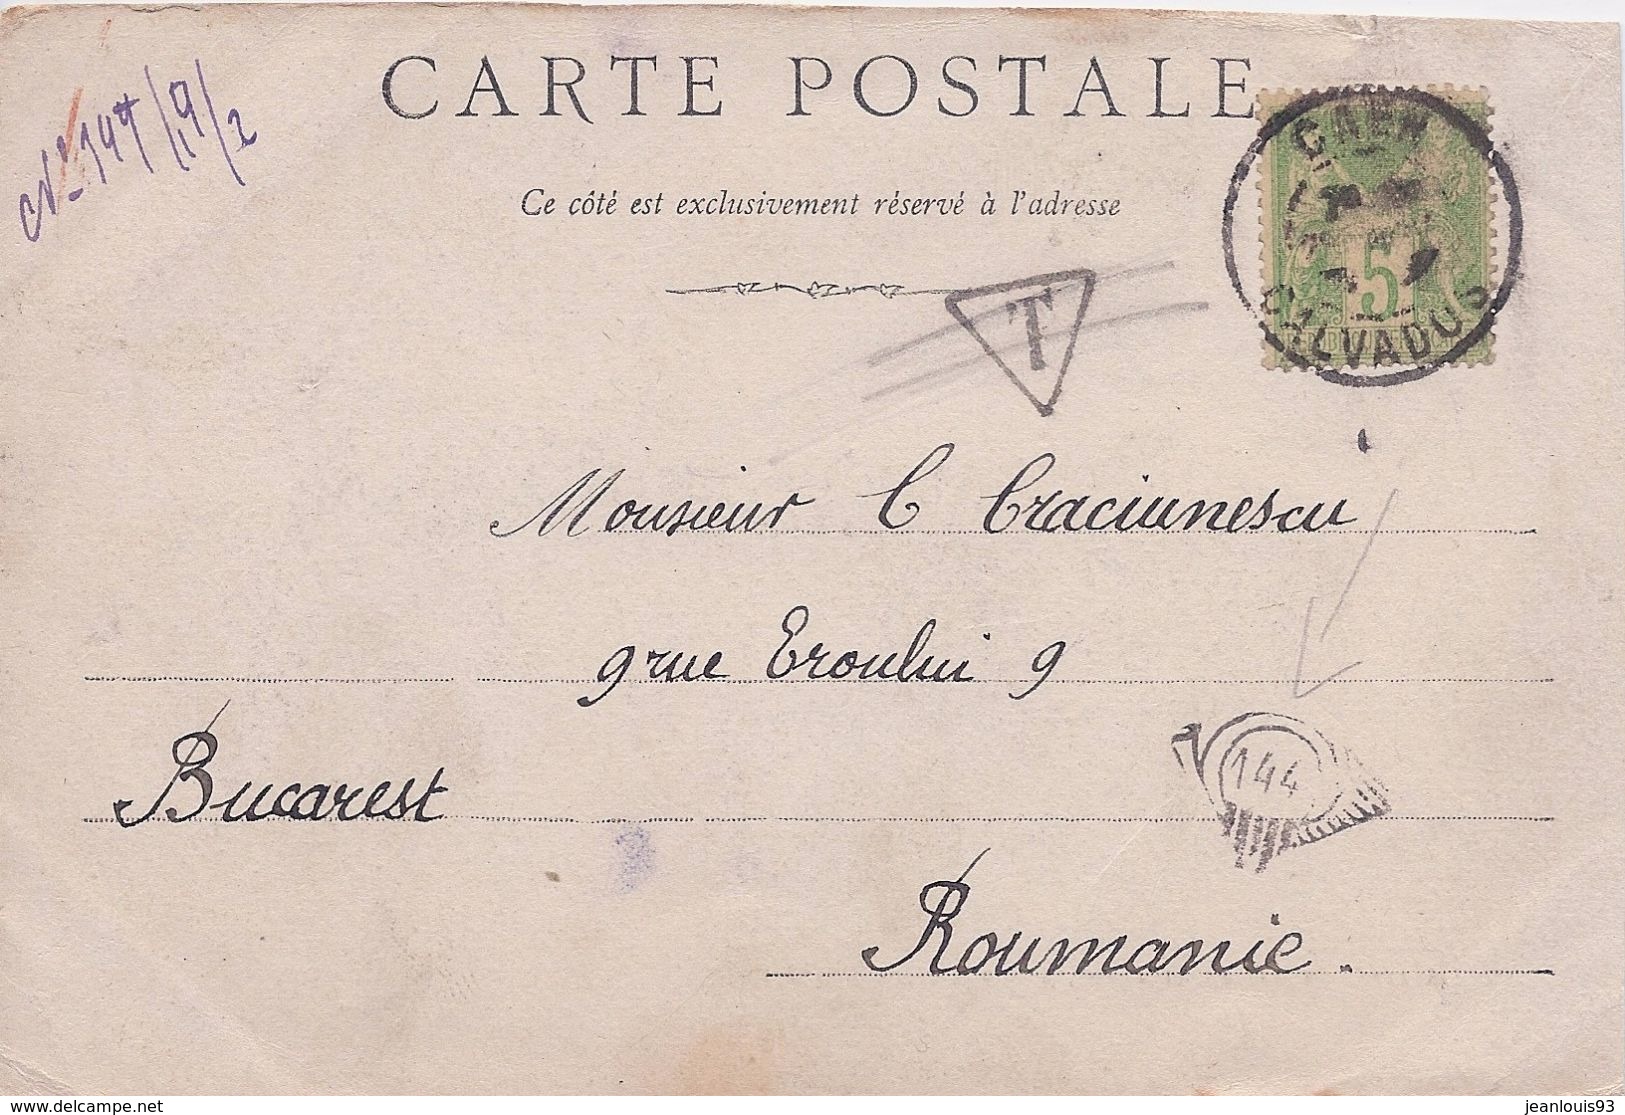 CARTE POSTALE
No 147/19/2
Ce côté est exclusivement réservé à l'adresse
CAEN
5
CALVADOS
T
Monsieur C Craciunescu
9 rue Eroului 9
Bucarest
144
Roumanie.
www.delcampe.net
jeanlouis93